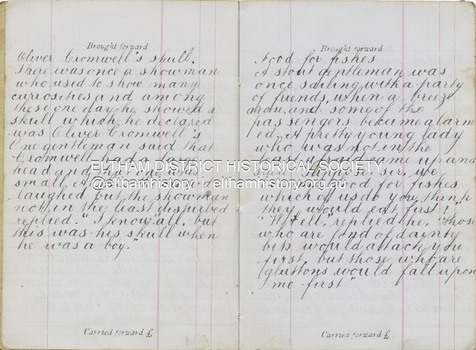 Brought forward
Oliver Cromwell's skull.
There was once a showman
who used to show many
curiosities and among
these one day he showed a
skull which he declared
was Oliver Cromwell's
One gentleman said that
Cromwell had a
head and that one was
small. All the
laughed but the showman
not in the least disturbed
replied. "I know all, but
this was his skull when
he was a boy."
Carried forward £
Brought forward
Food for fishes
A stout gentleman was
once sailing with a party
of friends, when a breeze
arose and some of the
passengers became alarm
ed. A pretty young lady
who was not in the
came up and
said "Suppose sir, we
food for fishes
which of us do you think
they would eat first?
"Well, replied he, "those
who are fond of dainty
bits would attack you
first, but those who are
gluttons would fall upon
me first"
Carried forward £
ELTHAM DISTRICT HISTORICAL SOCIETY
@elthamhistory - elthamhistory.org.au